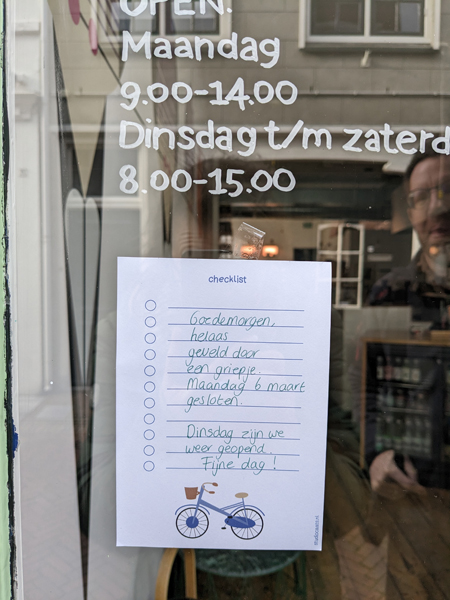 OPEN:
Maandag
9.00-14.00
Dinsdag t/m zaterd
8.00-15.00
checklist
Goedemorgen,
helaas
geveld door
een griepje.
Maandag 6 maart
gesloten.
Dinsdag zijn we
weer geopend.
Fijne dag!